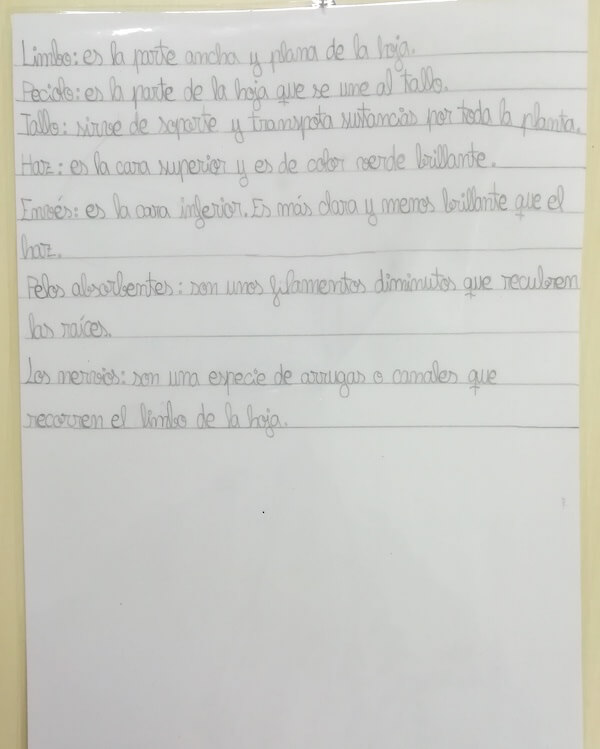 Limbo: es la parte ancha y plana de la hoja.
Peciolo: es la parte de la hoja que se une al tallo.
Tallo: sirve de soporte y transpota sustancias por toda la planta.
Haz: es la cara superior y es de color verde brillante.
Envés: es la cara inferior. Es más clara y menos brillante que el
haz.
Pelos absorbentes: son unos filamentos diminutos que recubren
las raíces.
Los nervios: son una especie de arrugas o canales que
recorren el limbo de la hoja.